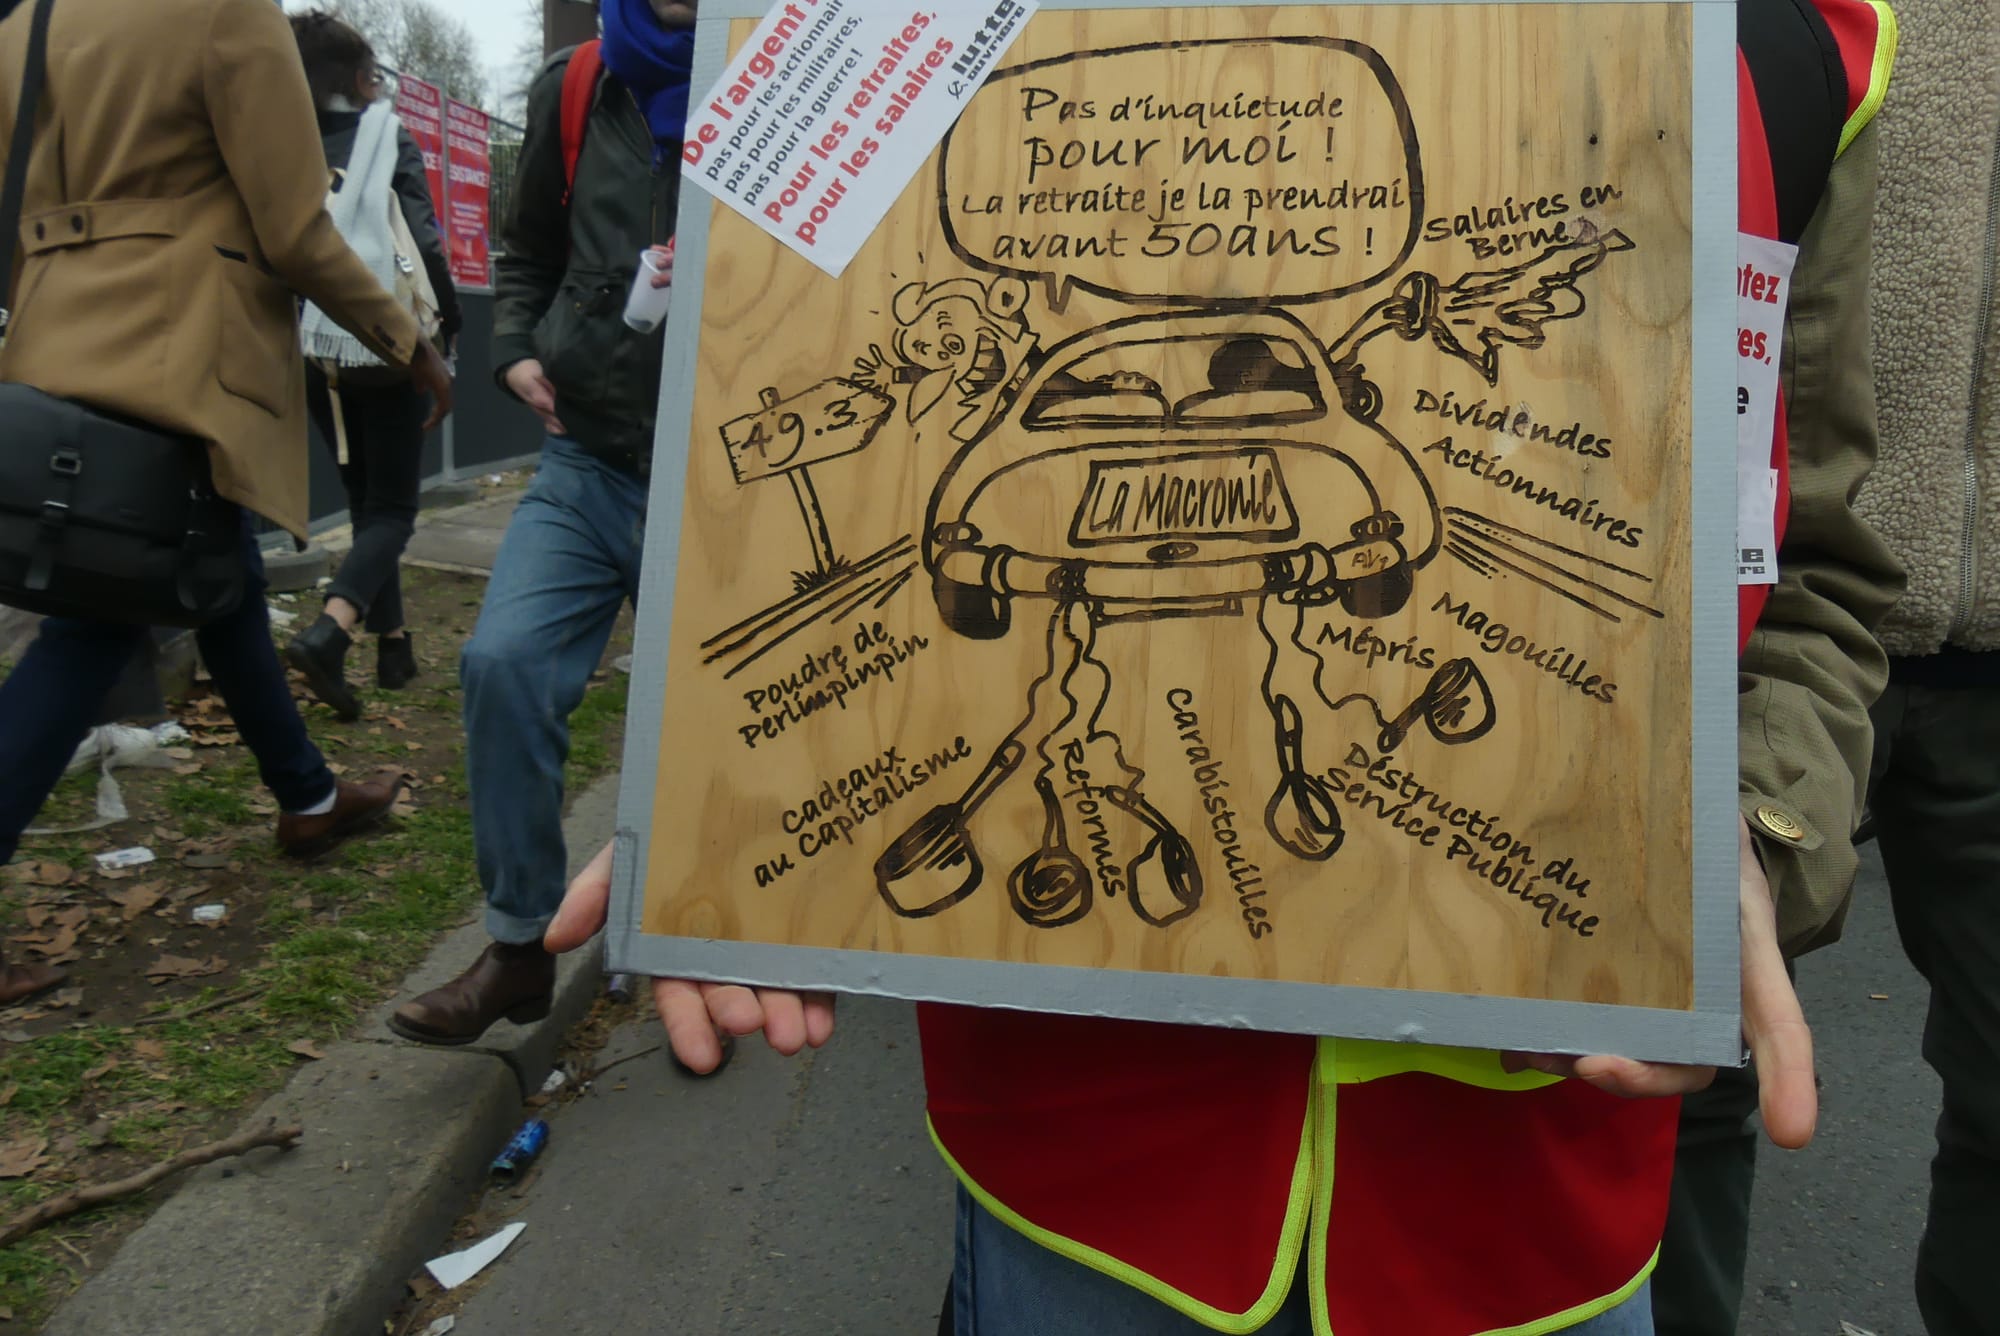 De l'argent
pas pour les actionnair
pas pour les militaires,
pas pour la guerre !
Pour les retraites,
pour les salaires
lutte
ouvrière
Pas d'inquietude
pour moi !
La retraite je la prendrai
avant 50ans !
Salaires en
Berne
49.3
La Macronie
Dividendes
Actionnaires
Magouilles
Mépris
Poudre de
Perlimpinpin
Cadeaux
au Capitalisme
Réformes
Carabistouilles
Déstruction du
Service Publique
ntez
res,
e